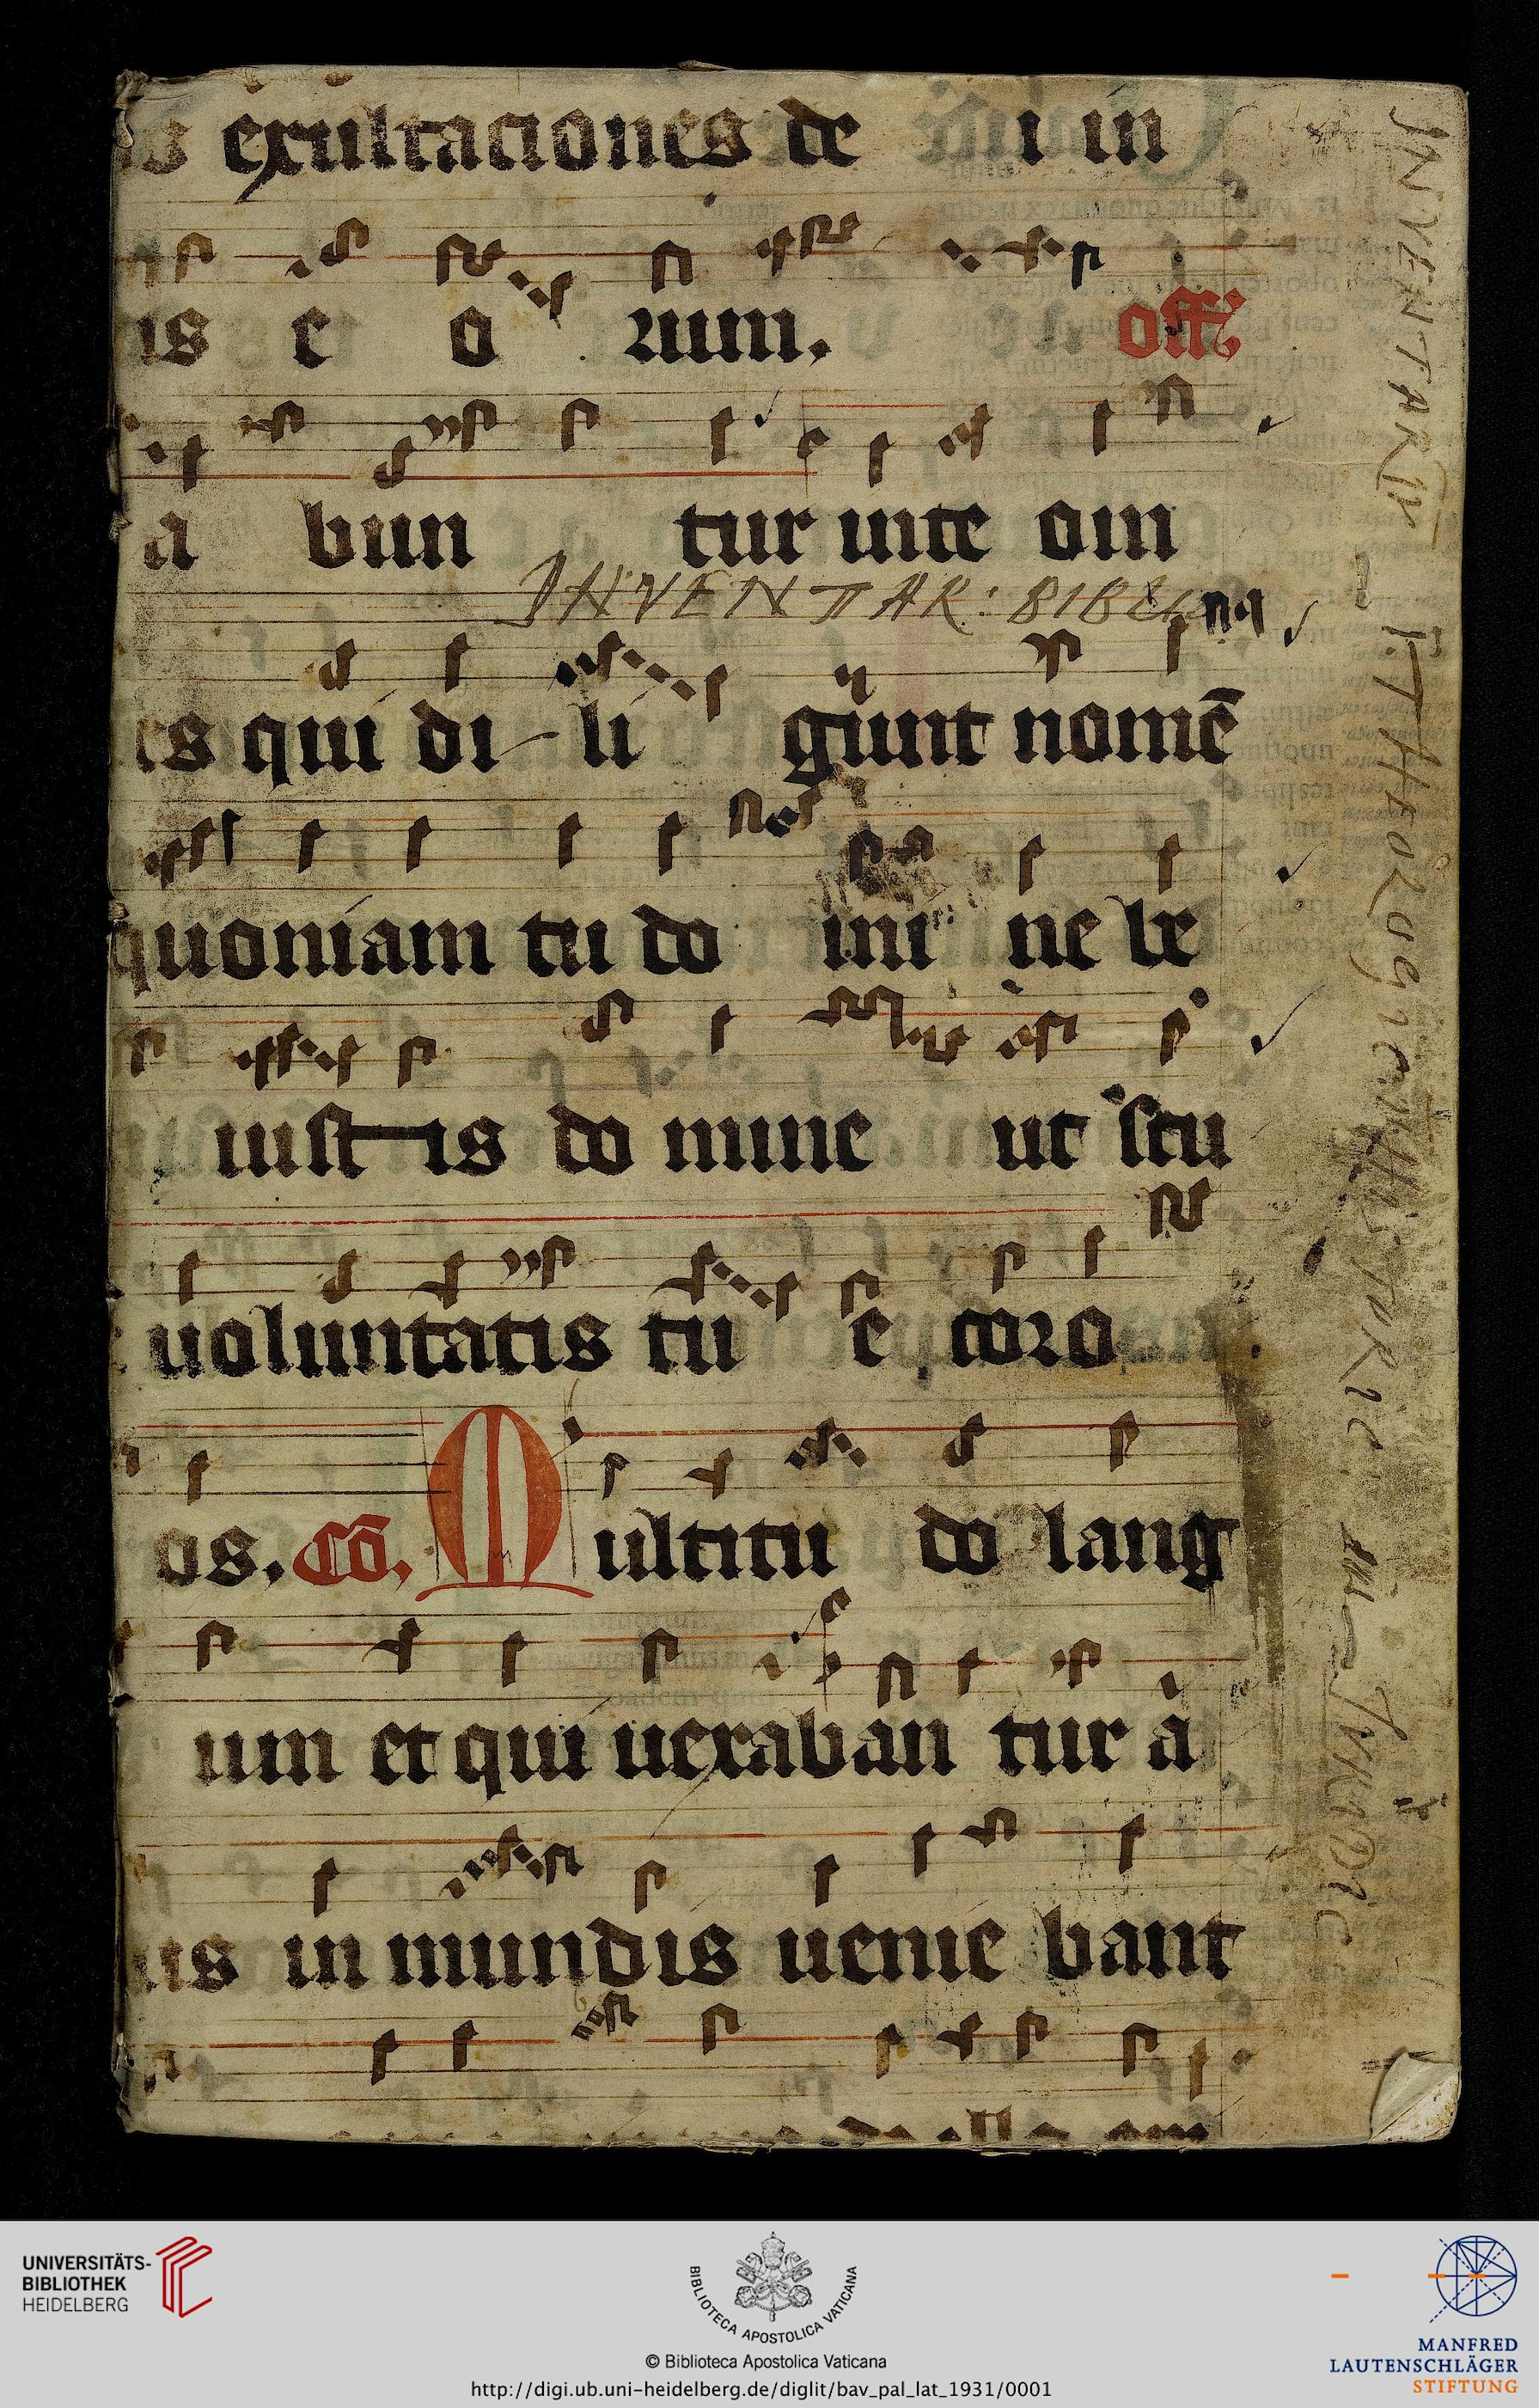 is exultaciones de i in
is e o rum. off
a bun tur inte om
INVENTAR: BIBL
es qui di li gunt nomē
quoniam tu do mi ne be
iust is do mine ut scu
uoluntatis tu e coro
os. Cō. Multitu do lang
um et qui uexaban tur a
us in mundis uenie bant
INVENTARIV
THEOLOGICVM HISTORIC
IVRIDIC
UNIVERSITÄTS-
BIBLIOTHEK
HEIDELBERG
BIBLIOTECA APOSTOLICA VATICANA
© Biblioteca Apostolica Vaticana
http://digi.ub.uni-heidelberg.de/diglit/bav_pal_lat_1931/0001
MANFRED
LAUTENSCHLÄGER
STIFTUNG